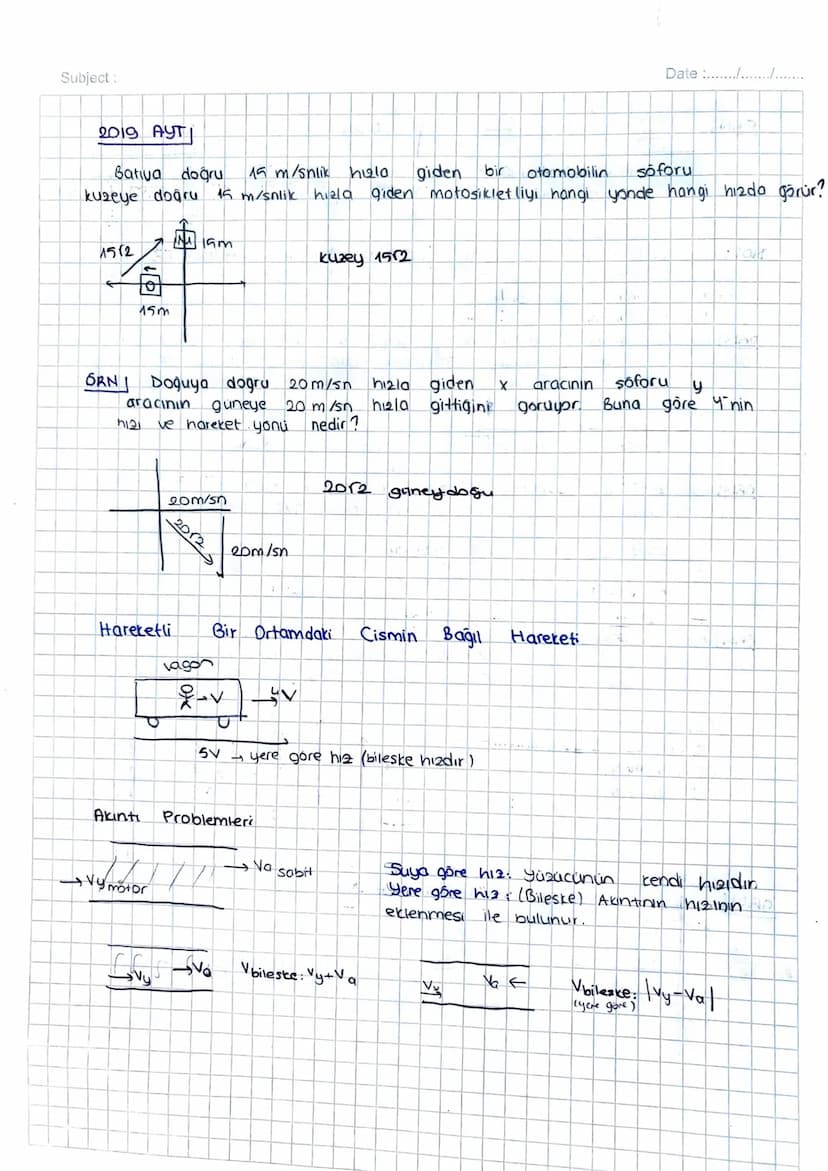 Subject :
Date :......./......./.......
2019 AYT
Batıya doğru 15 m/snlik hızla giden bir otomobilin şöforu
kuzeye doğru 15 m/snlik hızla giden motosikletliyi hangi yönde hangi hızda görür?
15√2
M 15m
kuzey 15√2
O
15m
ÖRN Doğuya dogru 20m/sn hızla giden x aracının şöforu y
aracının guneye 20 m/sn hızla gittigini goruyor. Buna göre Y'nin
hızı ve hareket yönü nedir?
20m/sn
20√2 güneydoğu
20√2
20m/sn
Hareketli Bir Ortamdaki Cismin Bağıl Hareketi
vagon
→V
→ 4V
5V → yere göre hız (bileske hızdır)
Akıntı Problemleri
→ Va sabit
→ Vy motor
Suya göre hız: Yüzücünün kendi hızıdır.
Yere göre hız: (Bileske) Akıntının hızının
eklenmesi ile bulunur.
→Vy →Va Vbileske: Vy+Va
Vy Va ← Vbileske: |Vy-Va|
(yere göre)